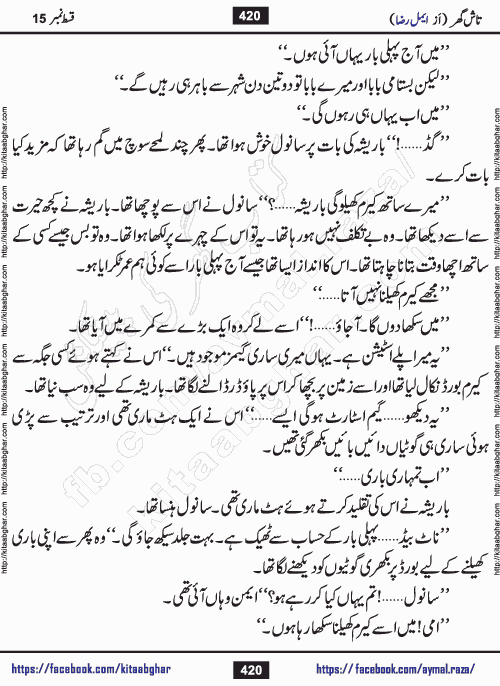 تاش گھر (از ایمل رضا) 420 قسط نمبر 15
’’میں آج پہلی بار یہاں آئی ہوں۔‘‘
’’لیکن بستامی بابا اور میرے بابا تو دو تین دن شہر سے باہر ہی رہیں گے۔‘‘
’’میں اب یہاں ہی رہوں گی۔‘‘
’’گڈ......!‘‘ باریشہ کی بات پر سانول خوش ہوا تھا۔ پھر چند لمحے سوچ میں گم رہا تھا کہ مزید کیا
بات کرے۔
’’میرے ساتھ کیرم کھیلو گی باریشہ......؟‘‘ سانول نے اس سے پوچھا تھا۔ باریشہ نے کچھ حیرت
سے اسے دیکھا تھا۔ وہ بے تکلف نہیں ہو رہا تھا۔ یہ تو اس کے چہرے پر لکھا ہوا تھا۔ وہ تو بس جیسے کسی کے
ساتھ اچھا وقت بتانا چاہتا تھا۔ اس کا انداز ایسا تھا جیسے آج پہلی بار اسے کوئی ہم عمر ٹکرایا ہو۔
’’مجھے کیرم کھیلنا نہیں آتا......‘‘
’’میں سکھا دوں گا۔ آ جاؤ......!‘‘ اسے لے کر وہ ایک بڑے سے کمرے میں آیا تھا۔
’’یہ میرا پلے اسٹیشن ہے۔ یہاں میری ساری گیمز موجود ہیں۔‘‘ اس نے کہتے ہوئے کسی جگہ سے
کیرم بورڈ نکال لیا تھا اور اسے زمین پر بچھا کر اس پر پاؤڈر ڈالنے لگا تھا۔ باریشہ کے لیے وہ سب نیا تھا۔
’’یہ دیکھو......گیم اسٹارٹ ہو گی ایسے......‘‘ اس نے ایک ہٹ ماری تھی اور ترتیب سے پڑی
ہوئی ساری ہی گوٹیاں دائیں بائیں بکھر گئی تھیں۔
’’اب تمہاری باری......‘‘
باریشہ نے اس کی تقلید کرتے ہوئے ہٹ ماری تھی۔ سانول ہنسا تھا۔
’’ناٹ بیڈ......پہلی بار کے حساب سے ٹھیک ہے۔ بہت جلد سیکھ جاؤ گی۔‘‘ وہ پھر سے اپنی باری
کھیلنے کے لیے بورڈ پر بکھری گوٹیوں کو دیکھنے لگا تھا۔
’’سانول......! تم یہاں کیا کر رہے ہو؟‘‘ ایمن وہاں آئی تھی۔
’’امی! میں اسے کیرم کھیلنا سکھا رہا ہوں۔‘‘
https://facebook.com/kitaabghar 420 https://facebook.com/aymal.raza/
http://kitaabghar.com http://kitaabghar.com http://kitaabghar.com http://kitaabghar.com
http://kitaabghar.com http://kitaabghar.com http://kitaabghar.com http://kitaabghar.com